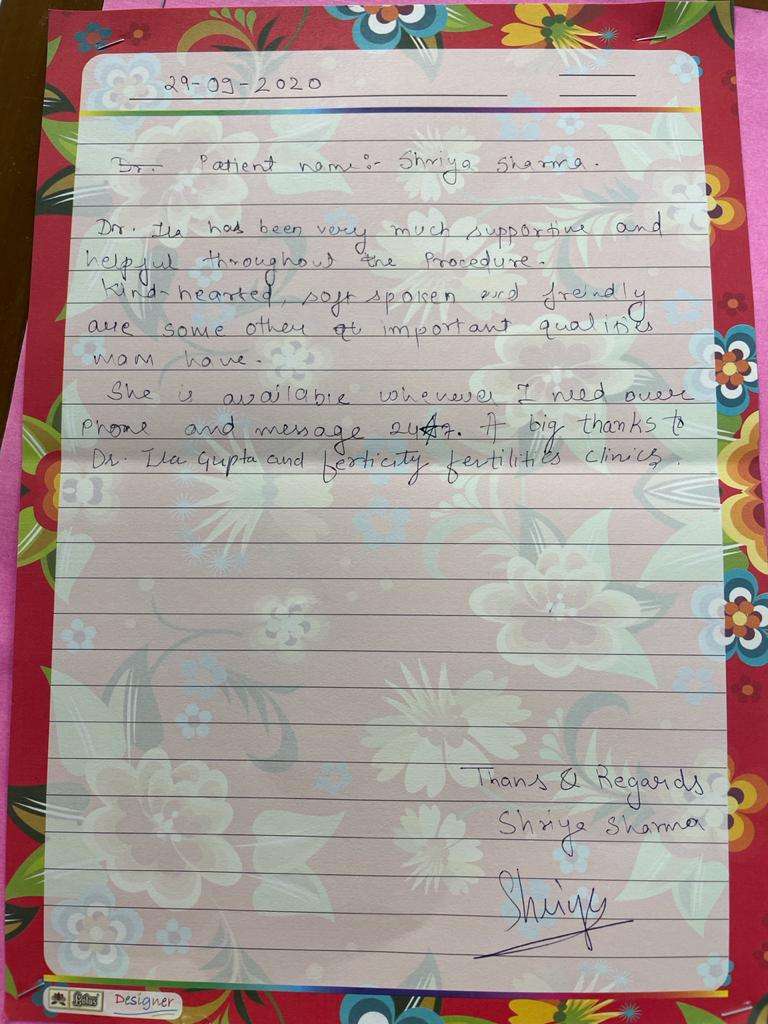 29-09-2020
Dr. Patient name:- Shriya Sharma.
Dr. Ila has been very much supportive and
helpful throughout the Procedure.
Kind-hearted, soft spoken and freindly
are some other important qualities
mam have.
She is available whenever I need over
Phone and message 24*7. A big thanks to
Dr. Ila Gupta and ferticity fertilities clinics.
Thans & Regards
Shriya Sharma
Shriya
Lotus Designer